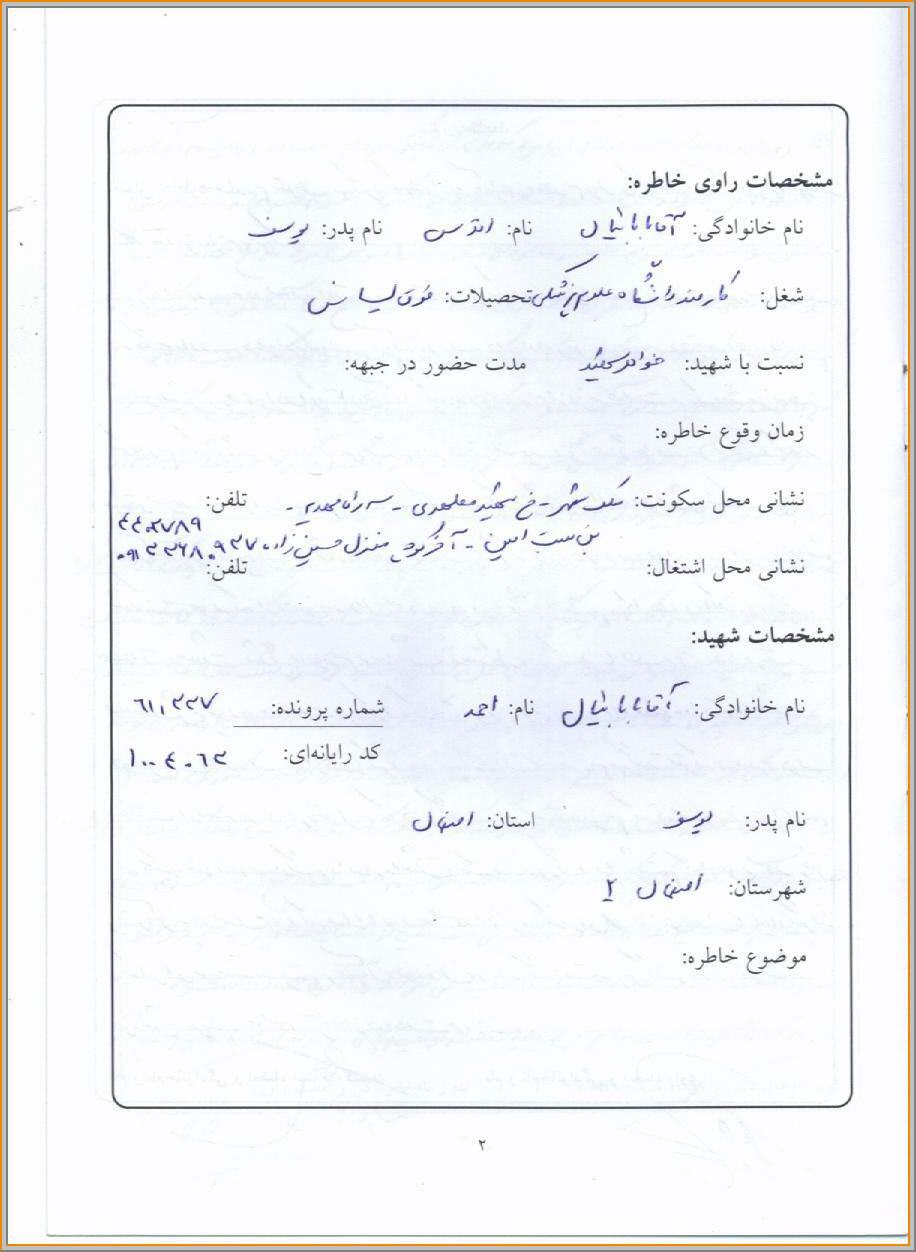 مشخصات راوی خاطره:
نام خانوادگی: آقابابائیان نام: اقدس نام پدر: یوسف
شغل: کارمند دانشگاه علوم پزشکی تحصیلات: فوق لیسانس
نسبت با شهید: خواهر شهید مدت حضور در جبهه:
زمان وقوع خاطره:
نشانی محل سکونت: ملک شهر - خ شهید مطهری - سه راه - تلفن:
بن بست امین - آخر کوچه منزل حسین زاده
نشانی محل اشتغال: تلفن:
مشخصات شهید:
نام خانوادگی: آقابابائیان نام: احمد شماره پرونده:
کد رایانه‌ای: ۱۰۰۴۰۶۳
نام پدر: یوسف استان: اصفهان
شهرستان: اصفهان ۲
موضوع خاطره:
۲